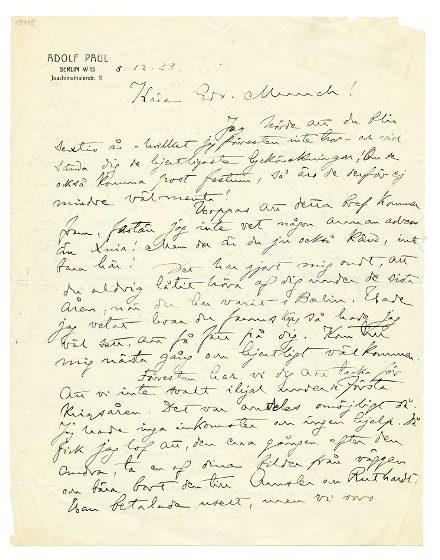 15719
ADOLF PAUL
BERLIN W 15
Joachimsthalerstr. 11
8. 12. 23
Käre Edv. Munch!
Jag hörde att du blir
sextio år - hvilket jag förresten inte tror - och vill
sända dig de hjertligaste lyckönskningar! Om de
också komma post festum, så äro de derför ej
mindre välmenta!
Hoppas att detta bref kommer
fram, fastän jag inte vet någon annan adress
än Der är du ju också känd, inte
bara här!
Det har gjort mig ondt, att
du aldrig låtit höra af dig under de sista
åren, när du har varit i Berlin. Hade
jag vetat hvar du fanns så hade jag
väl sett, att få fatt på dig. Kom till
mig nästa gång och hjertligt välkommen.
Förresten har vi dig att tacka för
att vi inte svalt ihjäl under de första
krigsåren. Det var alldeles omöjligt då.
Jag hade inga inkomster och ingen hjelp. Så
fick jag lof att, den ena gången efter den
andra, ta en af dina bilder från väggen
och bära bort den till Amsler och Ruthardt.
Han betalade uselt, men vi